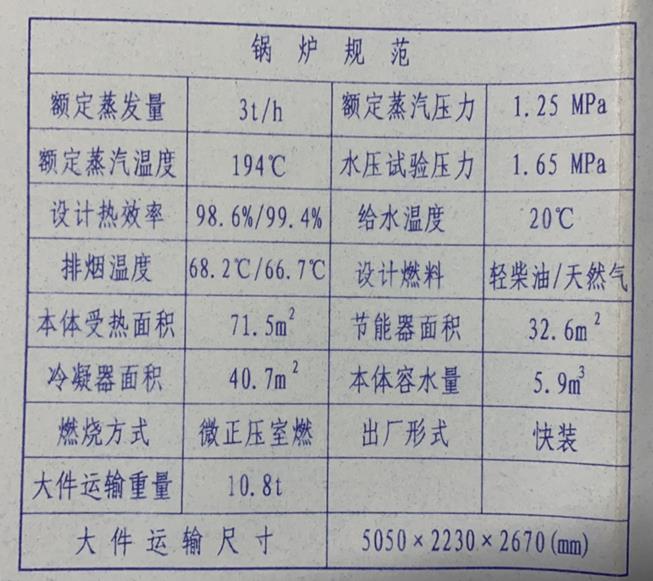 锅炉规范
额定蒸发量 3t/h 额定蒸汽压力 1.25 MPa
额定蒸汽温度 194℃ 水压试验压力 1.65 MPa
设计热效率 98.6%/99.4% 给水温度 20℃
排烟温度 68.2℃/66.7℃ 设计燃料 轻柴油/天然气
本体受热面积 71.5m² 节能器面积 32.6m²
冷凝器面积 40.7m² 本体容水量 5.9m³
燃烧方式 微正压室燃 出厂形式 快装
大件运输重量 10.8t
大件运输尺寸 5050×2230×2670(mm)